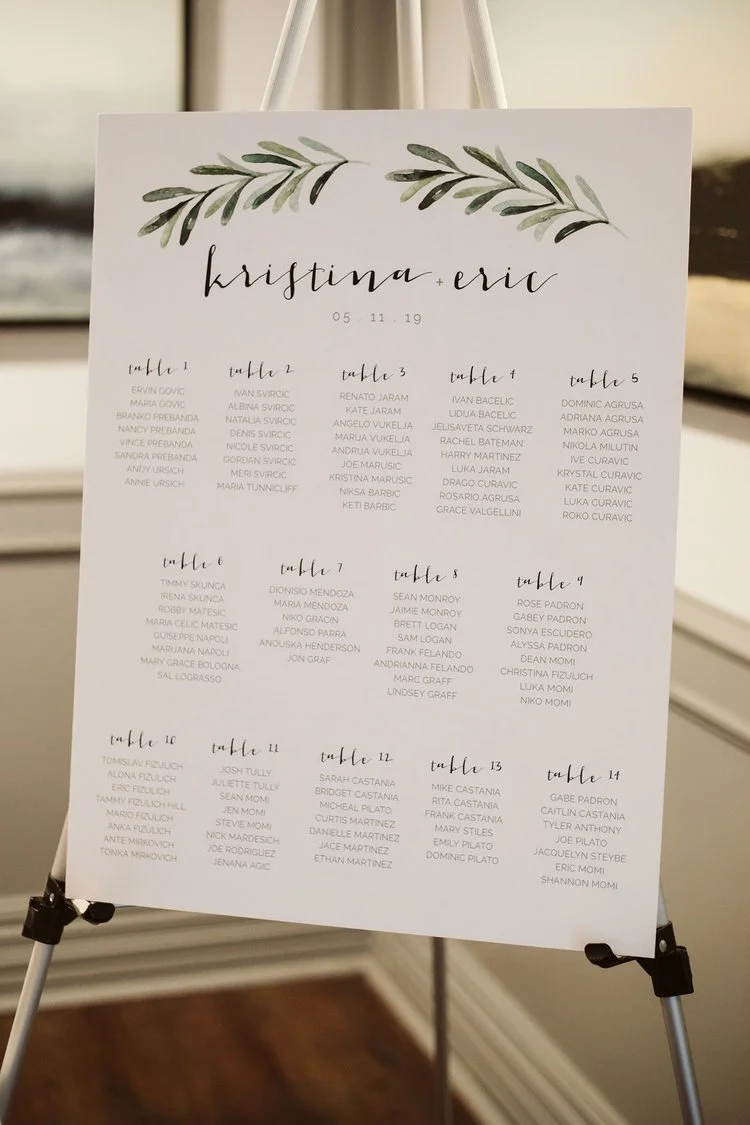 kristina + eric
05 . 11 . 19
table 1
ERVIN GOVIC
MARIA GOVIC
BRANKO PREBANDA
NANCY PREBANDA
VINCE PREBANDA
SANDRA PREBANDA
ANDY URSICH
ANNIE URSICH
table 2
IVAN SVIRCIC
ALBINA SVIRCIC
NATALIA SVIRCIC
DENIS SVIRCIC
NICOLE SVIRCIC
GORDAN SVIRCIC
MERI SVIRCIC
MARIA TUNNICLIFF
table 3
RENATO JARAM
KATE JARAM
ANGELO VUKELJA
MARIJA VUKELJA
ANDRIJA VUKELJA
JOE MARUSIC
KRISTINA MARUSIC
NIKSA BARBIC
KETI BARBIC
table 4
IVAN BACELIC
LIDIJA BACELIC
JELISAVETA SCHWARZ
RACHEL BATEMAN
HARRY MARTINEZ
LUKA JARAM
DRAGO CURAVIC
ROSARIO AGRUSA
GRACE VALGELLINI
table 5
DOMINIC AGRUSA
ADRIANA AGRUSA
MARKO AGRUSA
NIKOLA MILUTIN
IVE CURAVIC
KRYSTAL CURAVIC
KATE CURAVIC
LUKA CURAVIC
ROKO CURAVIC
table 6
TIMMY SKUNCA
IRENA SKUNCA
ROBBY MATESIC
MARIA CELIC MATESIC
GUISEPPE NAPOLI
MARIJANA NAPOLI
MARY GRACE BOLOGNA
SAL LOGRASSO
table 7
DIONISIO MENDOZA
MARIA MENDOZA
NIKO GRACIN
ALFONSO PARRA
ANOUSKA HENDERSON
JON GRAF
table 8
SEAN MONROY
JAIMIE MONROY
BRETT LOGAN
SAM LOGAN
FRANK FELANDO
ANDRIANNA FELANDO
MARC GRAFF
LINDSEY GRAFF
table 9
ROSE PADRON
GABEY PADRON
SONYA ESCUDERO
ALYSSA PADRON
DEAN MOMI
CHRISTINA FIZULICH
LUKA MOMI
NIKO MOMI
table 10
TOMISLAV FIZULICH
ALONA FIZULICH
ERIC FIZULICH
TAMMY FIZULICH HILL
MARIO FIZULICH
ANKA FIZULICH
ANTE MIRKOVICH
TONKA MIRKOVICH
table 11
JOSH TULLY
JULIETTE TULLY
SEAN MOMI
JEN MOMI
STEVIE MOMI
NICK MARDESICH
JOE RODRIGUEZ
JENANA AGIC
table 12
SARAH CASTANIA
BRIDGET CASTANIA
MICHEAL PILATO
CURTIS MARTINEZ
DANIELLE MARTINEZ
JACE MARTINEZ
ETHAN MARTINEZ
table 13
MIKE CASTANIA
RITA CASTANIA
FRANK CASTANIA
MARY STILES
EMILY PILATO
DOMINIC PILATO
table 14
GABE PADRON
CAITLIN CASTANIA
TYLER ANTHONY
JOE PILATO
JACQUELYN STEYBE
ERIC MOMI
SHANNON MOMI